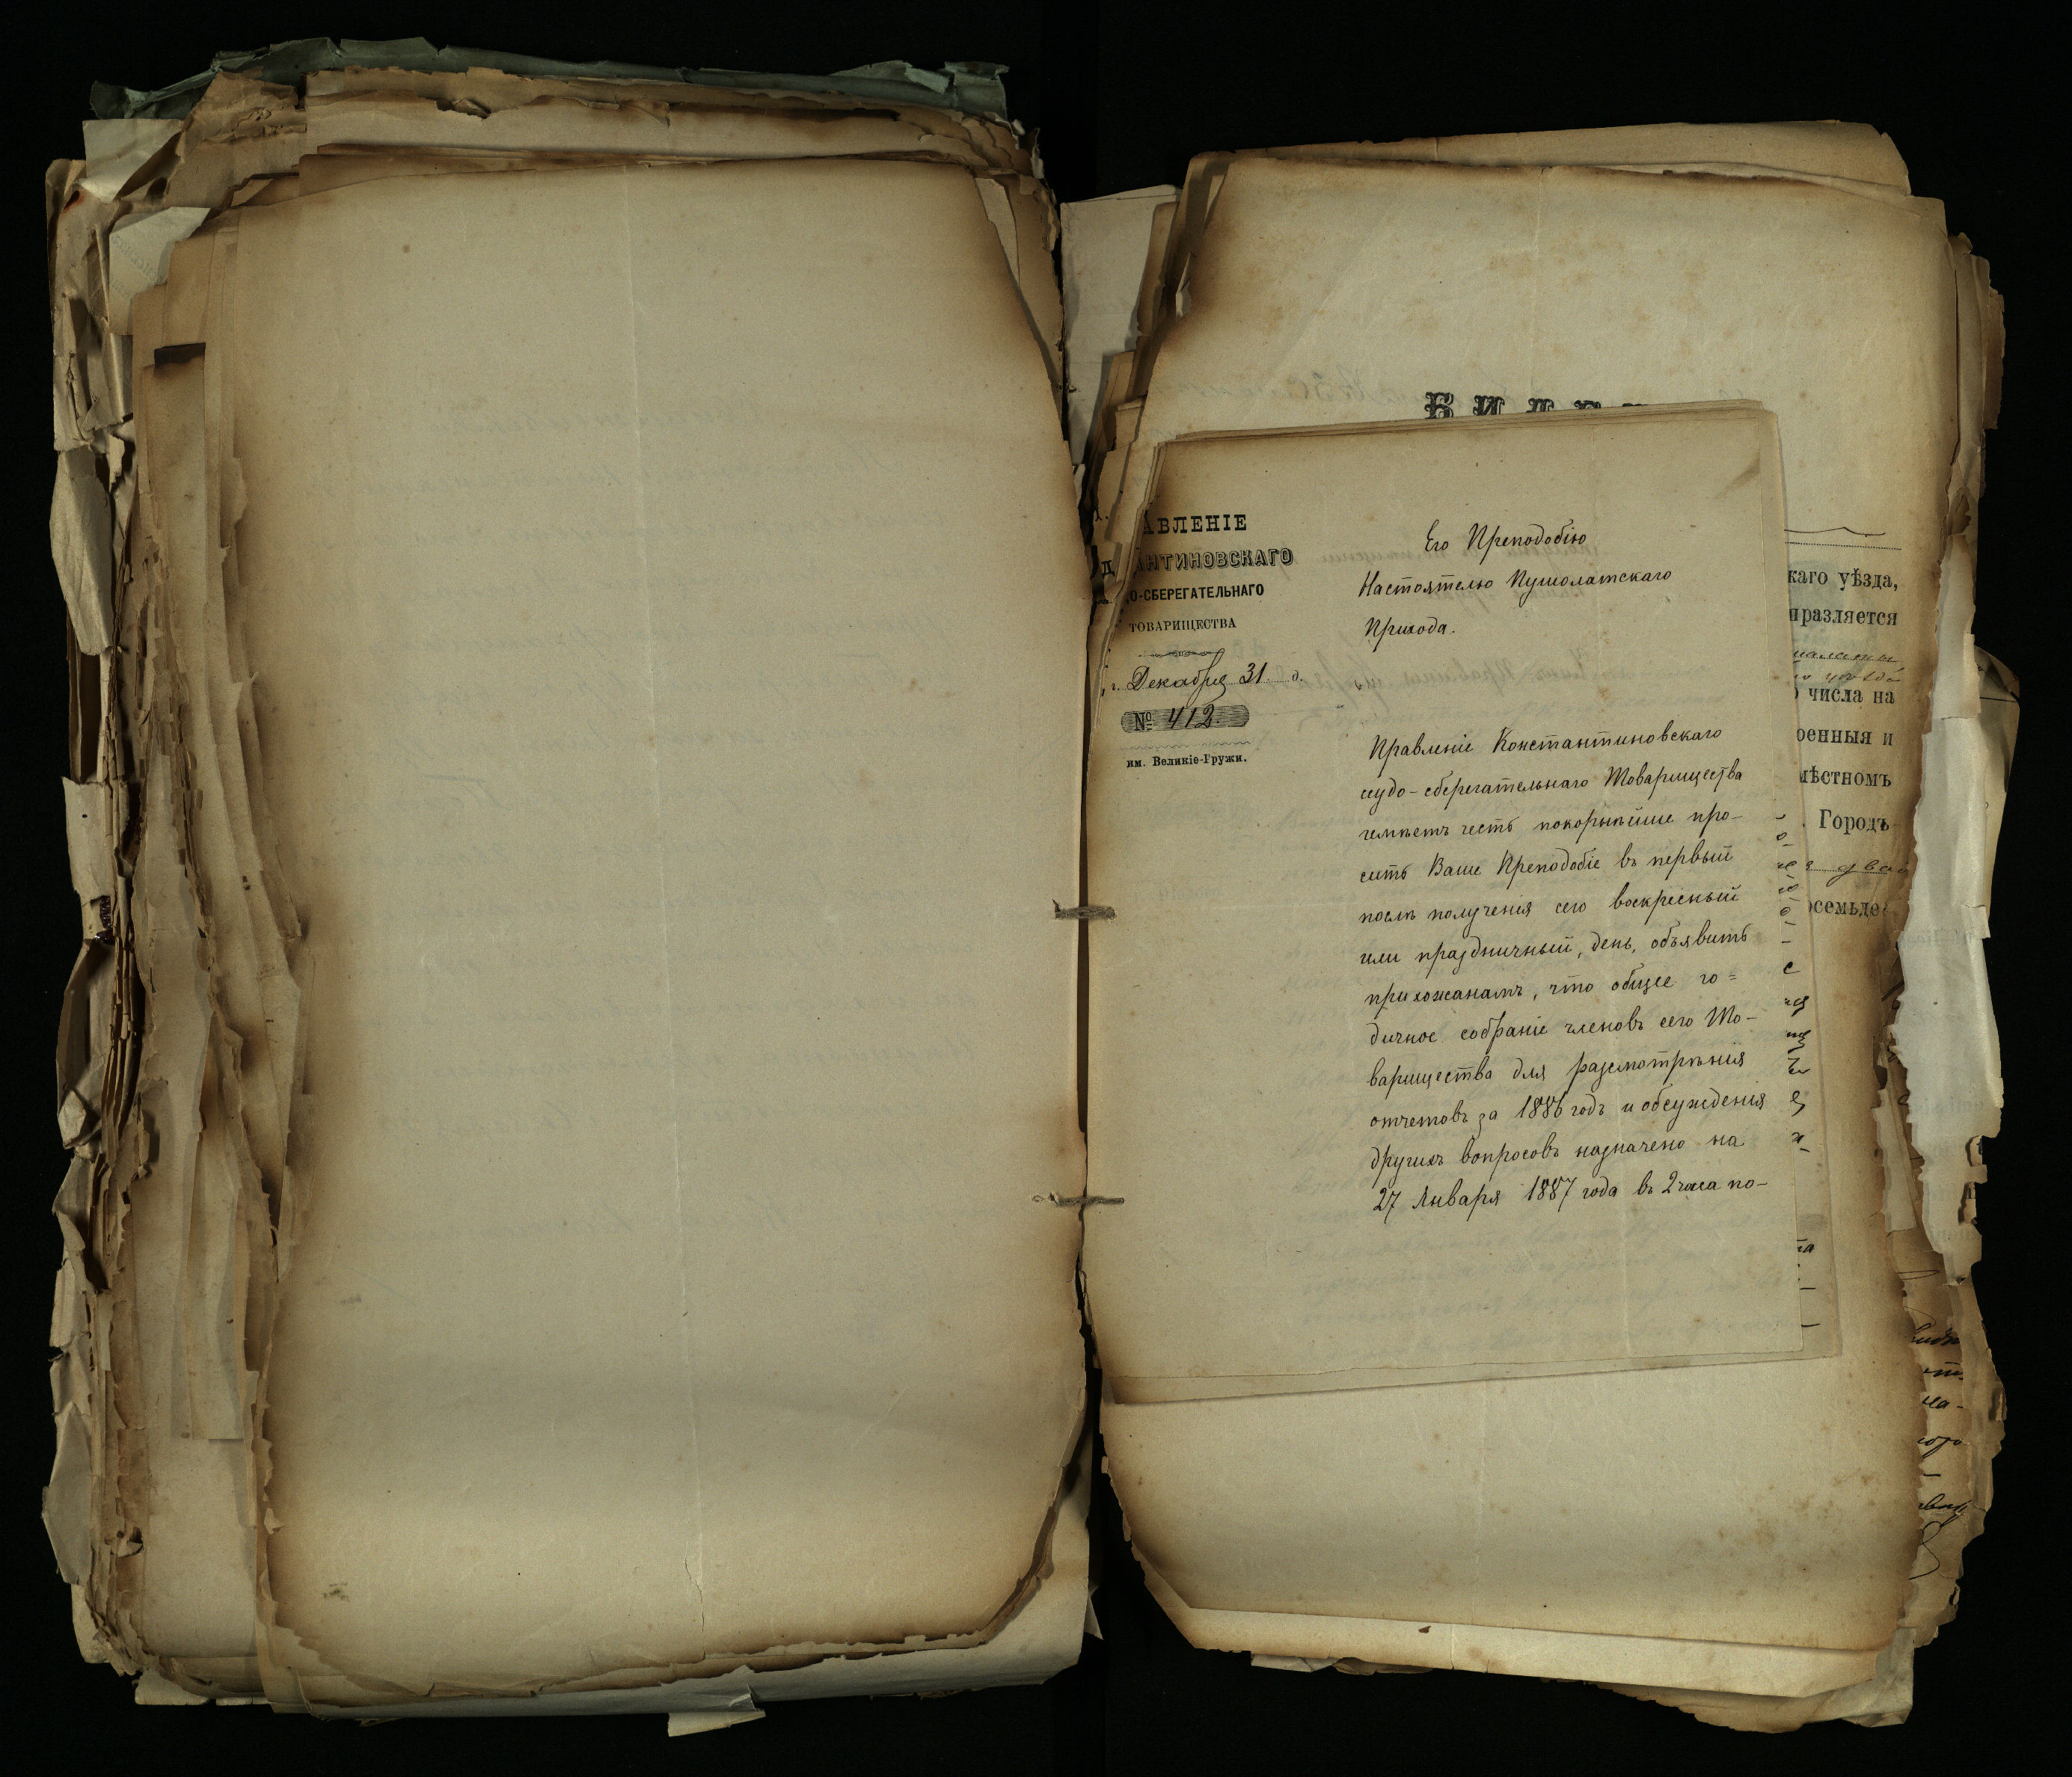 БИЛЕТ
АВЛЕНІЕ
АНТИНОВСКАГО
О-СБЕРЕГАТЕЛЬНАГО
ТОВАРИЩЕСТВА
г. Декабря 31 д.
№ 412.
им. Великіе-Гружи.
Его Преподобію
Настоятелю Пушолатскаго
Прихода.
Правленіе Константиновскаго
ссудо-сберегательнаго Товарищества
имѣетъ честь покорнѣйше про-
сить Ваше Преподобіе въ первый
послѣ полученія сего воскресный
или праздничный, день, объявить
прихожанамъ, что общее го=
дичное собраніе членовъ сего То-
варищества для разсмотрѣнія
отчетовъ за 1886 годъ и обсужденія
другихъ вопросовъ назначено на
27 Января 1887 года въ 2 часа по-
каго уѣзда,
празляется
числа на
оенныя и
мѣстномъ
. Городъ
два
осемьде